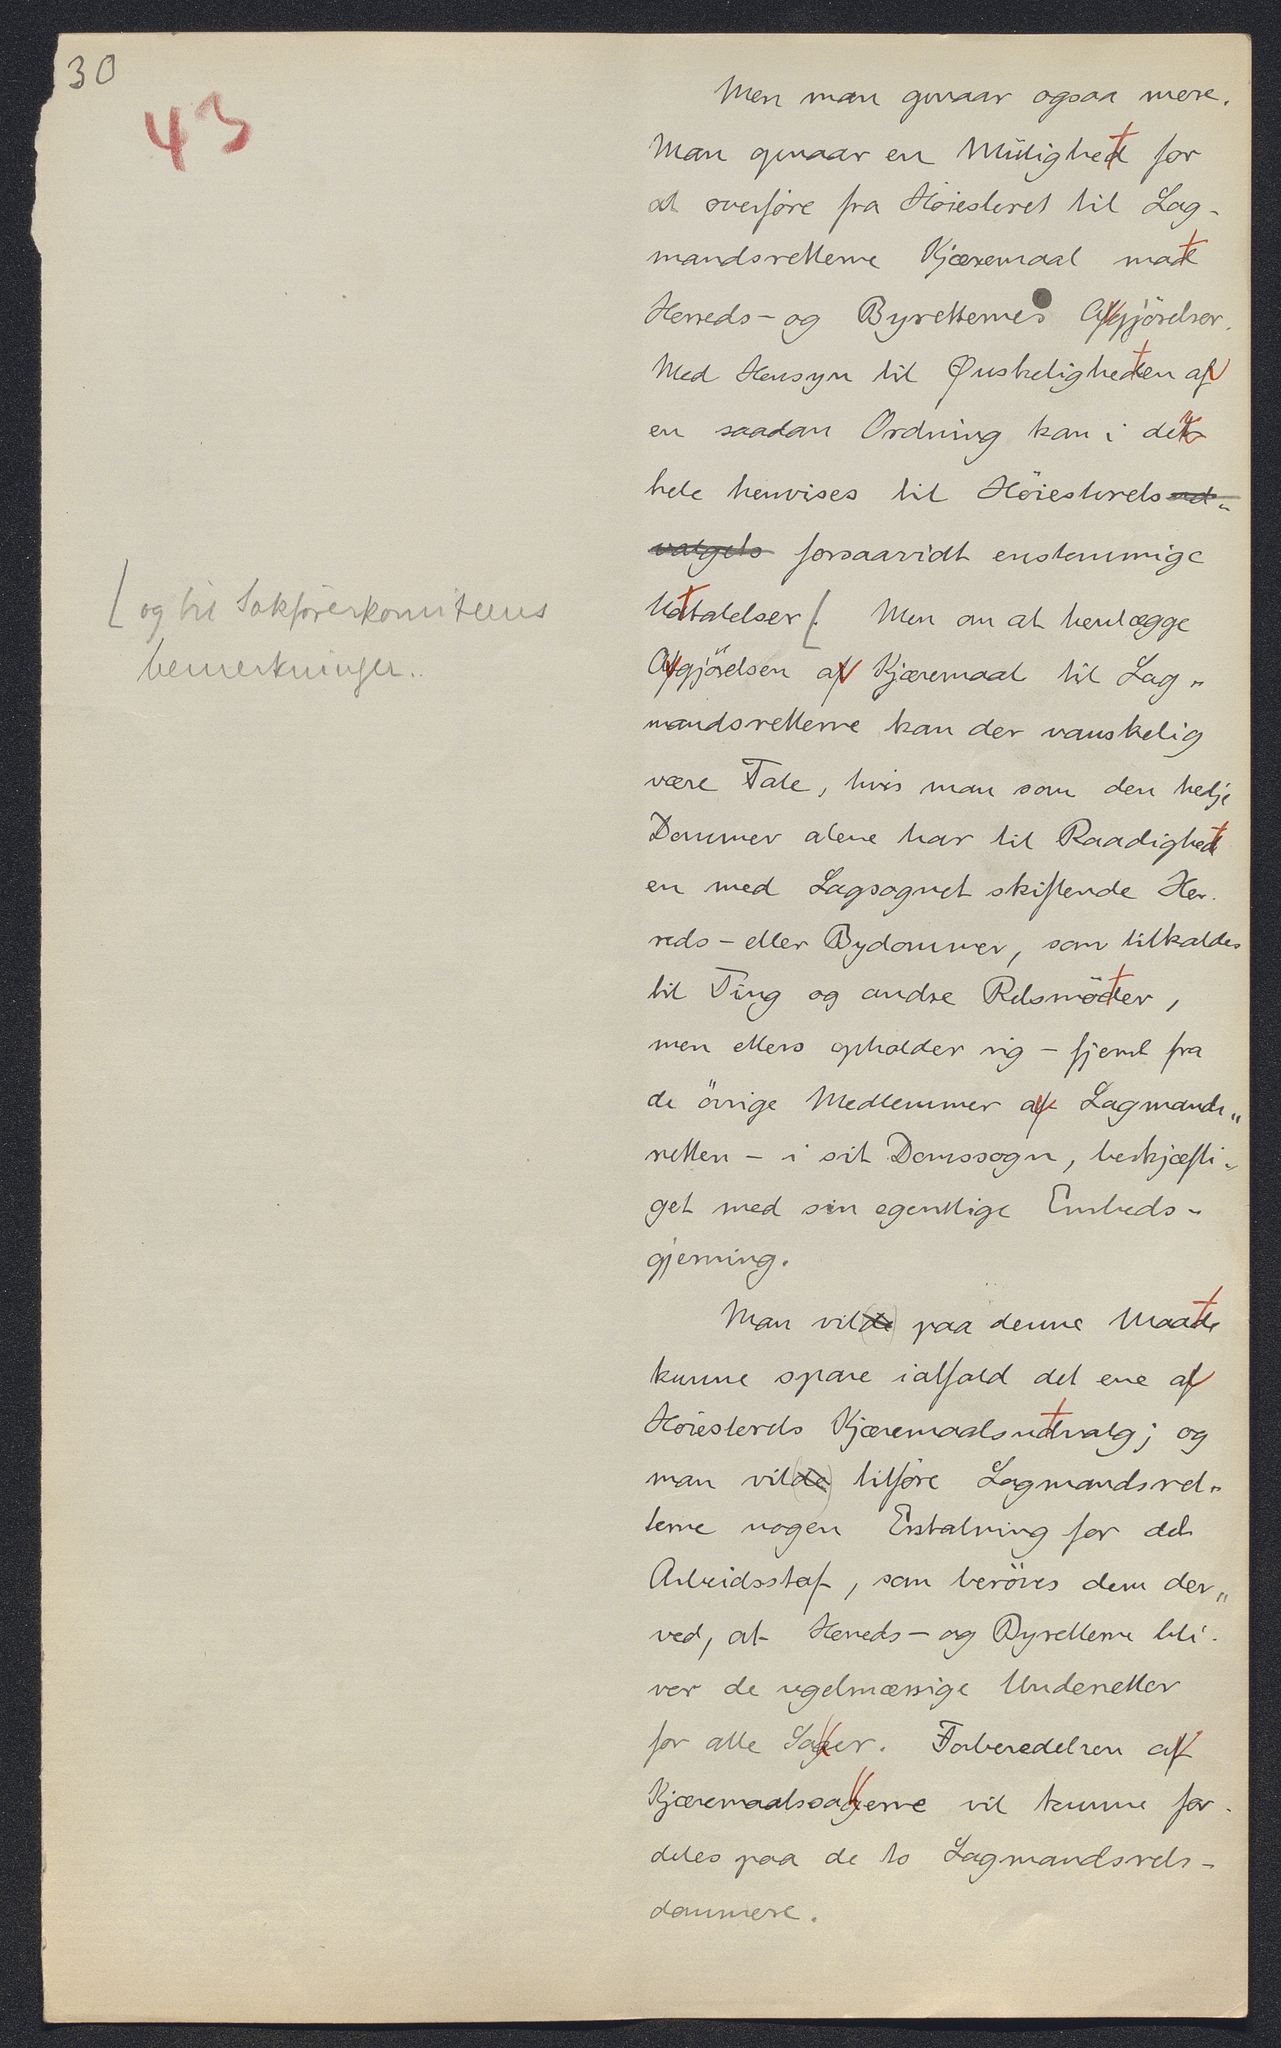 30
43
Men man opnaar ogsaa mere.
Man opnaar en Mulighet for
at overføre fra Höiesteret til Lag-
mandsretterne Kjæremaal mot
Herreds- og Byretternes Avgjörelser.
Med Hensyn til Ønskeligheten av
en saadan Ordning kan i det
hele henvises til Höiesterets ud-
valgets forsaavidt enstemmige
Uttalelser [. Men om at henlægge
[ og til Sakførerkomiteens
bemerkninger..
Avgjörelsen av Kjæremaal til Lag-
mandsretterne kan der vanskelig
være Tale, hvis man som den tredje
Dommer alene har til Raadighet
en med Lagsognet skiftende Her-
reds- eller Bydommer, som tilkaldes
til Ting og andre Retsmöter,
men ellers opholder sig – fjernt fra
de övrige Medlemmer av Lagmands-
retten – i sit Domssogn, beskjæfti-
get med sin egentlige Embeds-
gjerning.
Man vil(de) paa denne Maate
kunne spare ialfald det ene av
Höiesterets Kjæremaalsutvalg; og
man vil(de) tilføre Lagmandsret-
terne nogen Erstatning for det
Arbeidsstof, som beröves dem der-
ved, at Herreds- og Byretterne bli-
ver de regelmæssige Underretter
for alle Saker. Forberedelsen av
Kjæremaalssakerne vil kunne for-
deles paa de to Lagmandsrets-
dommere.